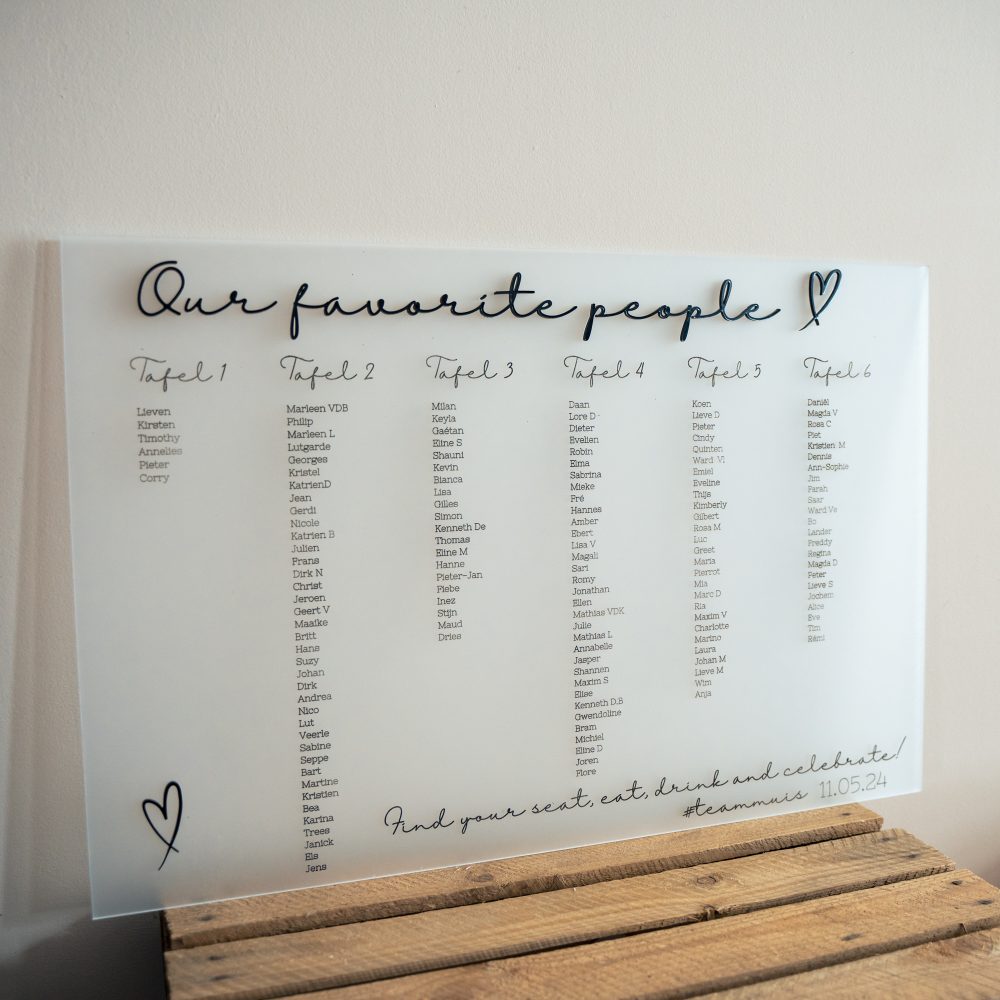 Our favorite people
Tafel 1
Lieven
Kirsten
Timothy
Annelies
Pieter
Corry
Tafel 2
Marleen VDB
Philip
Marleen L
Lutgarde
Georges
Kristel
KatrienD
Jean
Gerdi
Nicole
Katrien B
Julien
Frans
Dirk N
Christ
Jeroen
Geert V
Maaike
Britt
Hans
Suzy
Johan
Dirk
Andrea
Nico
Lut
Veerle
Sabine
Seppe
Bart
Martine
Kristien
Bea
Karina
Trees
Janick
Els
Jens
Tafel 3
Milan
Keyla
Gaétan
Eline S
Shauni
Kevin
Bianca
Lisa
Gilles
Simon
Kenneth De
Thomas
Eline M
Hanne
Pieter-Jan
Fiebe
Inez
Stijn
Maud
Dries
Tafel 4
Daan
Lore D
Dieter
Evelien
Robin
Elma
Sabrina
Mieke
Fré
Hannes
Amber
Ebert
Lisa V
Magali
Sari
Romy
Jonathan
Ellen
Mathias VDK
Julie
Mathias L
Annabelle
Jasper
Shannen
Maxim S
Elise
Kenneth D.B
Gwendoline
Bram
Michiel
Eline D
Joren
Flore
Tafel 5
Koen
Lieve D
Pieter
Cindy
Quinten
Ward Vl
Emiel
Eveline
Thijs
Kimberly
Gilbert
Rosa M
Luc
Greet
Maria
Pierrot
Mia
Marc D
Ria
Maxim V
Charlotte
Marino
Laura
Johan M
Lieve M
Wim
Anja
Tafel 6
Daniël
Magda V
Rosa C
Piet
Kristien M
Dennis
Ann-Sophie
Jim
Farah
Saar
Ward Ve
Bo
Lander
Freddy
Regina
Magda D
Peter
Lieve S
Jochem
Alice
Eve
Tim
Rémi
Find your seat, eat, drink and celebrate!
#teammuis 11.05.24